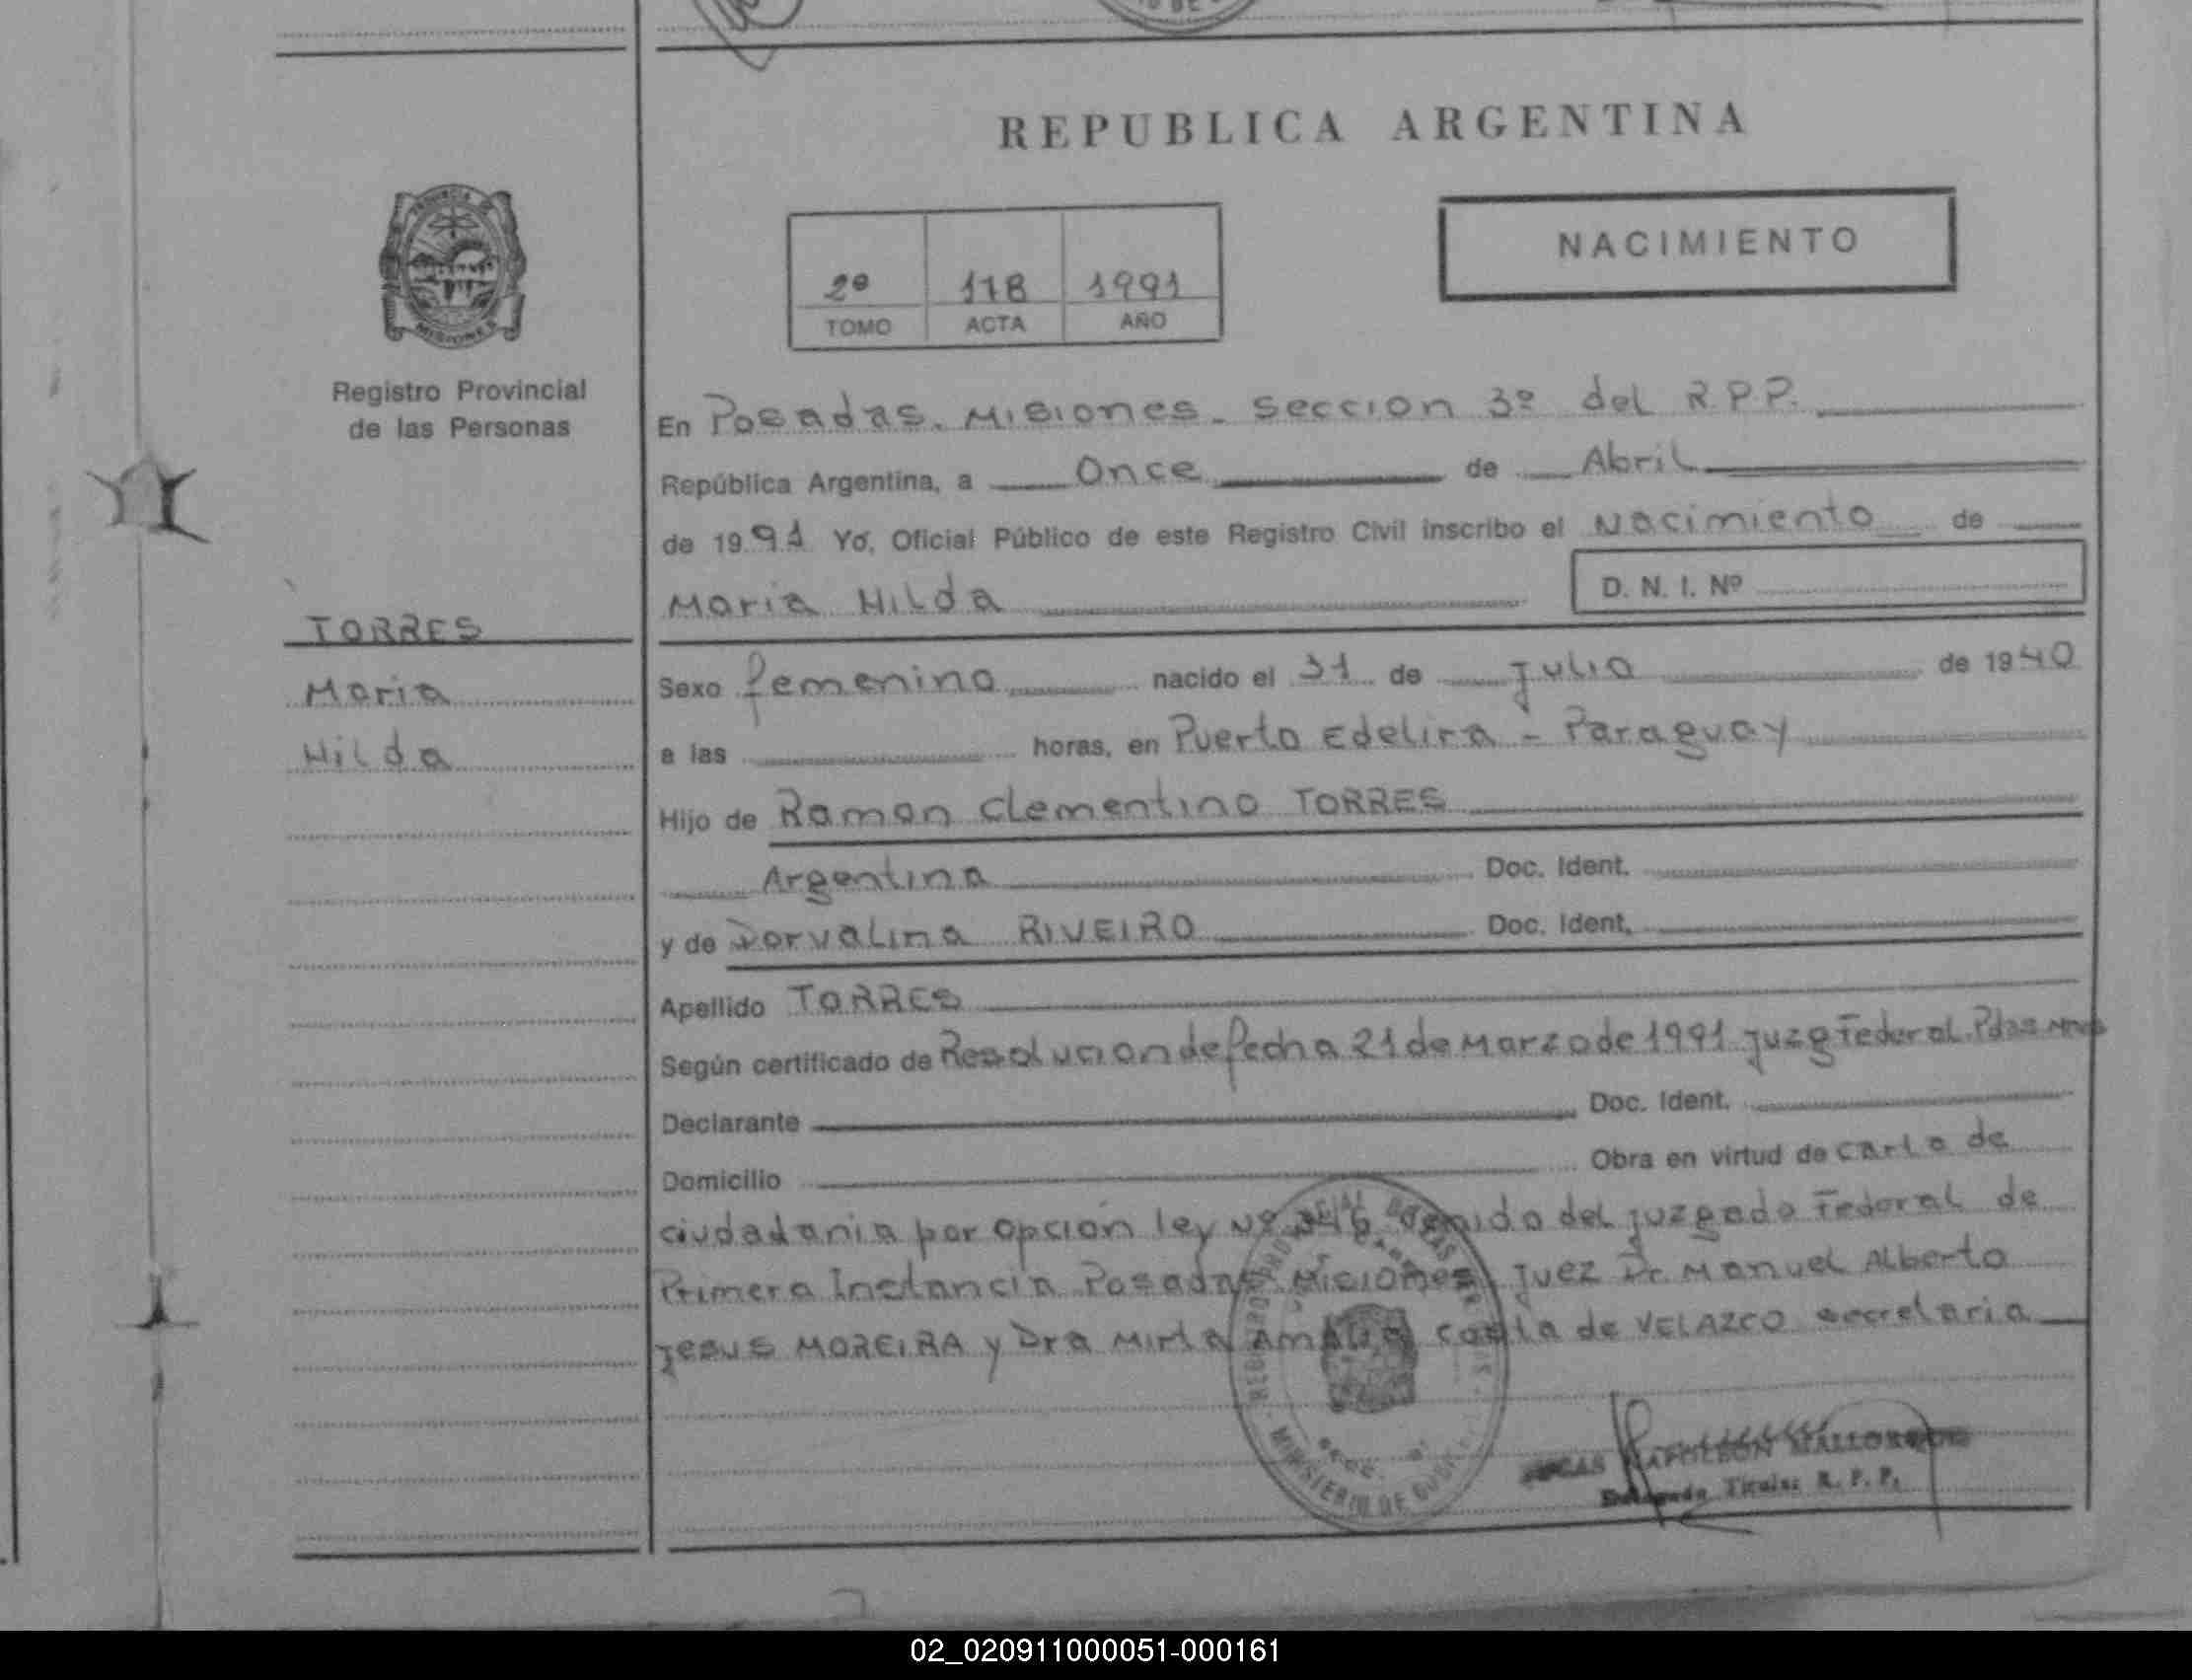 REPUBLICA ARGENTINA
NACIMIENTO
2º 118 1991
TOMO ACTA AÑO
MISIONES
Registro Provincial
de las Personas
TORRES
Maria
Hilda
En Posadas. Misiones. Seccion 3º del R.P.P.
República Argentina, a Once de Abril
de 1991 Yo, Oficial Público de este Registro Civil inscribo el Nacimiento de
Maria Hilda D. N. I. Nº
Sexo femenino nacido el 31 de julio de 1940
a las horas, en Puerto Edelira - Paraguay
Hijo de Ramon Clementino TORRES
Argentina Doc. Ident.
y de Dorvalina RIVEIRO Doc. Ident.
Apellido TORRES
Según certificado de Resolucion de fecha 21 de Marzo de 1991 juzg Federal. Pdas Mnes
Declarante Doc. Ident.
Domicilio Obra en virtud de carta de
ciudadania por opcion ley Nº 346 del juzgado Federal de
Primera Instancia Posadas Misiones juez Dr. Manuel Alberto
jesus MOREIRA y Dra Mirta de VELAZCO secretaria
MINISTERIO DE
NAPOLEON
Titular R. P. P.
02_020911000051-000161